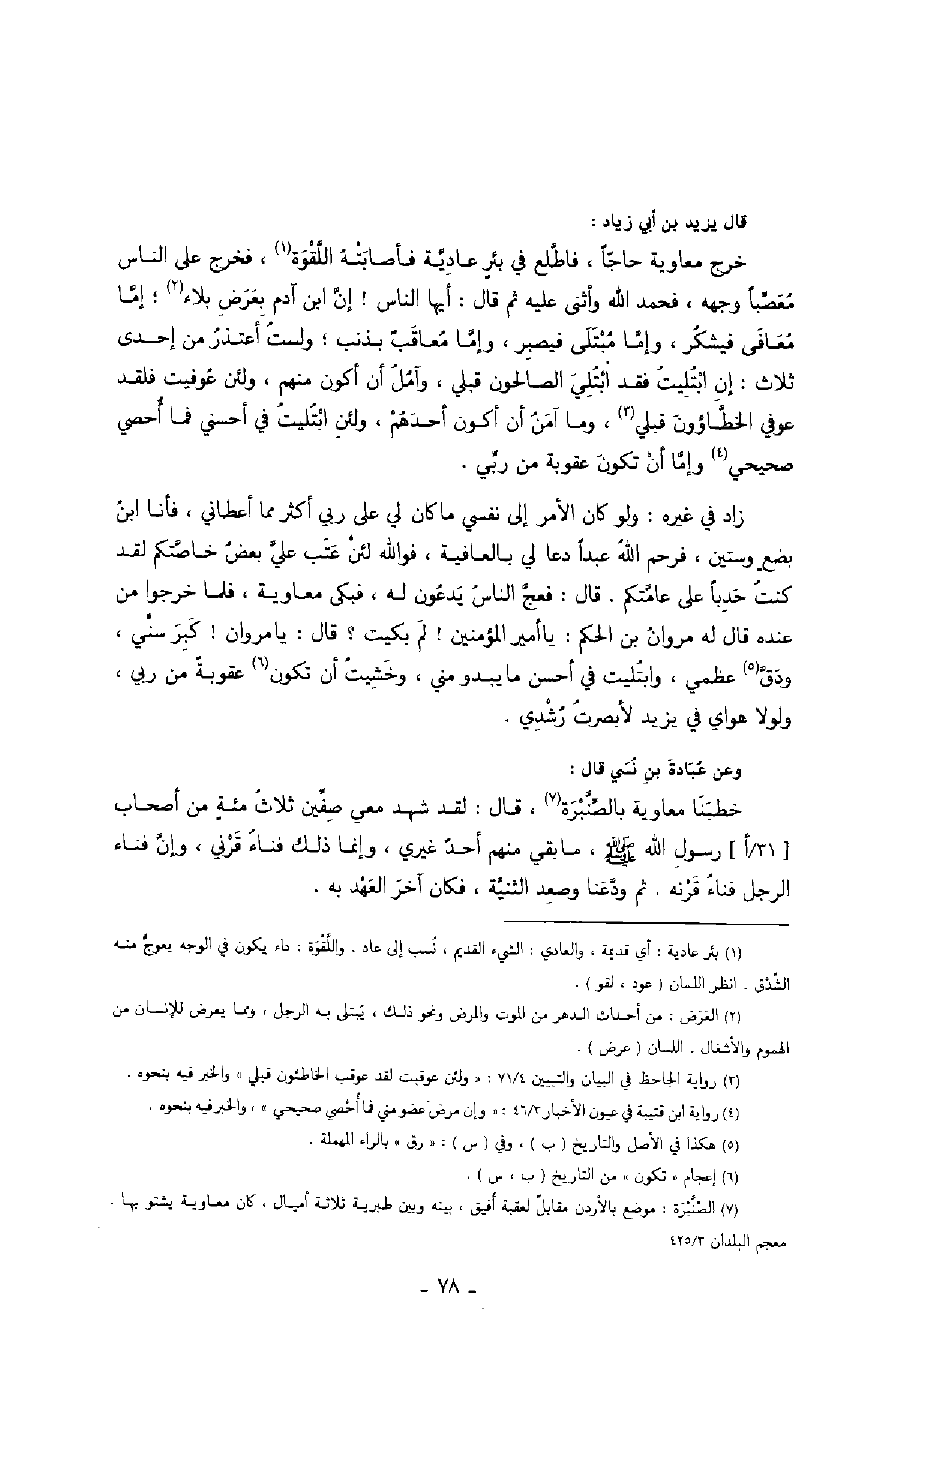 قال يزيد بن أبي زياد :
خرج معاوية حاجّاً ، فاطَّلع في بئرٍ عاديَّة فأصابَتْهُ اللَّقْوَة(١) ، فخرج على الناس
مُعَصِّباً وجهه ، فحمد الله وأثنى عليه ثم قال : أيها الناس ! إنَّ ابن آدم بِعَرَضِ بلاء(٢) ؛ إمَّا
مُعَافَى فيشكُر ، وإمَّا مُبْتَلَى فيصبِر ، وإمَّا مُعاقَبٌ بذنب ؛ ولستُ أعتذرُ من إحدى
ثلاث : إن ابْتُليتُ فقد ابْتُلِيَ الصالحون قبلي ، وآمُلُ أن أكون منهم ، ولئن عُوفيت فلقد
عوفي الخطَّاؤون قبلي(٣) ، وما آمَنُ أن أكون أحدَهُمْ ، ولئن ابْتُليتُ في أحسني فما أُحصي
صحيحي(٤) وإمَّا أنْ تكونَ عقوبة من ربِّي .
زاد في غيره : ولو كان الأمر إلى نفسي ماكان لي على ربي أكثر مما أعطاني ، فأنا ابنُ
بضعٍ وستين ، فرحم اللهُ عبداً دعا لي بالعافية ، فوالله لئنْ عَتَب عليَّ بعضُ خاصَّتكم لقد
كنتُ حَدِباً على عامَّتكم . قال : فعجَّ الناسُ يَدعُون له ، فبكى معاوية ، فلما خرجوا من
عنده قال له مروانُ بن الحكم : ياأمير المؤمنين ! لِمَ بكيت ؟ قال : يامروان ! كَبِرَ سنِّي ،
ودَقَّ(٥) عظمي ، وابتُليت في أحسن مايبدو مني ، وخَشِيتُ أن تكون(٦) عقوبةً من ربي ،
ولولا هواي في يزيد لأبصرتُ رُشْدي .
وعن عُبَادةَ بنِ نُسَي قال :
خطَبَنَا معاوية بالصِّنَّبْرَة(٧) ، قال : لقد شهد معي صِفِّين ثلاثُ مئةٍ من أصحاب
[ ٣١/أ ] رسولِ الله ﷺ ، مابقي منهم أحدٌ غيري ، وإنما ذلك فناءُ قَرْني ، وإنَّ فناء
الرجل فناءُ قَرْنه . ثم ودَّعَنا وصعِد الثنيَّة ، فكان آخرَ العَهْد به .
(١) بئر عادية : أي قديمة ، والعادي : الشيء القديم ، نُسب إلى عاد . واللَّقْوَة : داء يكون في الوجه يعوجُّ منه
الشِّدْق . انظر اللسان ( عود ، لقو ) .
(٢) العَرَض : من أحداث الدهر من الموت والمرض ونحو ذلك ، يُبتلى به الرجل ، ومما يعرض للإنسان من
الهموم والأشغال . اللسان ( عرض ) .
(٣) رواية الجاحظ في البيان والتبيين ٧١/٤ : « ولئن عوقبت لقد عوقب الخاطئون قبلي » والخبر فيه بنحوه .
(٤) رواية ابن قتيبة في عيون الأخبار ٤٦/٣ : « وإن مرض عضو مني فما أُحصي صحيحي » ، والخبر فيه بنحوه .
(٥) هكذا في الأصل والتاريخ ( ب ) ، وفي ( س ) : « رق » بالراء المهملة .
(٦) إعجام « تكون » من التاريخ ( ب ، س ) .
(٧) الصِّنَّبْرَة : موضع بالأردن مقابلٌ لعقبة أفيق ، بينه وبين طبرية ثلاثة أميال ، كان معاوية يشتو بها .
معجم البلدان ٤٢٥/٣
ـ ٧٨ ـ